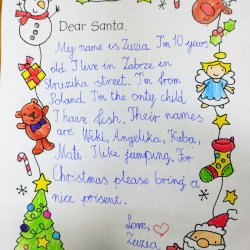 Dear Santa,
My name is Zuzia. I'm 10 years
old I live in Zabrze in
Struzika street. I'm from
Poland I'm the only child
I have fish. Their names
are Wiki, Angelika, Kuba,
Mati. I like jumping. For
Christmas please bring a
nice prisent.
Love,
Zuzia